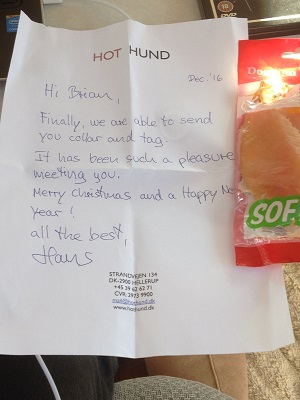 HOT HUND
Dec. '16
Hi Brian,
Finally, we are able to send
you collar and tag.
It has been such a pleasure
meeting you.
Merry Christmas and a Happy
year!
all the best,
Hans
STRANDVEJEN 134
DK-2900 HELLERUP
+45 39 62 62 71
CVR: 2973 9900
www.hothund.dk
SOF
DVD